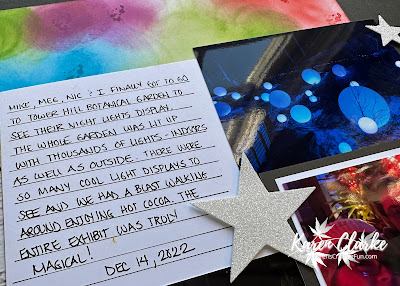 MIKE, MEG, NIC & I FINALLY GOT TO GO
TO TOWER HILL BOTANICAL GARDEN TO
SEE THEIR NIGHT LIGHTS DISPLAY.
THE WHOLE GARDEN WAS LIT UP
WITH THOUSANDS OF LIGHTS - INDOORS
AS WELL AS OUTSIDE. THERE WERE
SO MANY COOL LIGHT DISPLAYS TO
SEE AND WE HAD A BLAST WALKING
AROUND ENJOYING HOT COCOA. THE
ENTIRE EXHIBIT WAS TRULY
MAGICAL! DEC 14, 2022
Karen Clarke